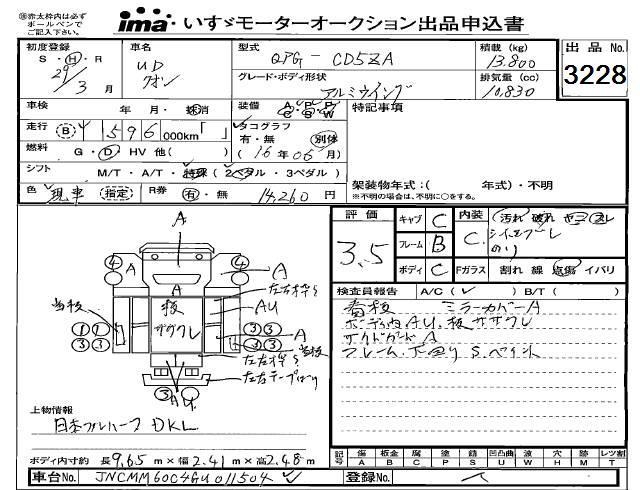 ㊟赤太枠内は必ず
ボールペンで
ご記入下さい。
ima いすゞモーターオークション出品申込書
初度登録 車名 型式 積載 (kg) 出品 No.
S ・ H ・ R UD QPG - CD5ZA 13.800
29年 3月 クオン グレード・ボディ形状 排気量 (cc) 3228
アルミウイング 10,830
車検 年 月・抹消 装備 A P R C S W 特記事項
走行 B 596 000km「 」 タコグラフ 有・無 別体
燃料 G・D・HV 他( ) (16年06月)
シフト M/T・A/T・特殊 (2ペダル・3ペダル) 架装物年式:( 年式)・不明
※不明の場合は、不明に○をする。
色 現車 (指定) R券 有・無 14,260 円
評価 キャブ C 内装 汚れ 破れ
3.5 フレーム B C シートコゲ
ボディ C Fガラス 割れ 線 飛傷 イバリ
検査員報告 A/C( ) B/T( )
看板 ミラーカバーA
ボディ内AU.板ササクレ
サイドガードA
フレーム.下回りS.ペイント
A
④ A A ④ A
A 左右枠
板 AU
看板 ササクレ
① ① ③ ③ A
③ ③ ③ ③ 看板
左右枠
左右テープはり
③ AU
上物情報
日本フルハーフ DKL
ボディ内寸約 長9.65 m×幅2.41 m×高2.48 m
記号 傷 板金 腐 塗 錆 凹凸曲 波 穴 跡 レツ割
A B C P S U W H M T
車台No. JNCMM60C4GU011504 登録No.